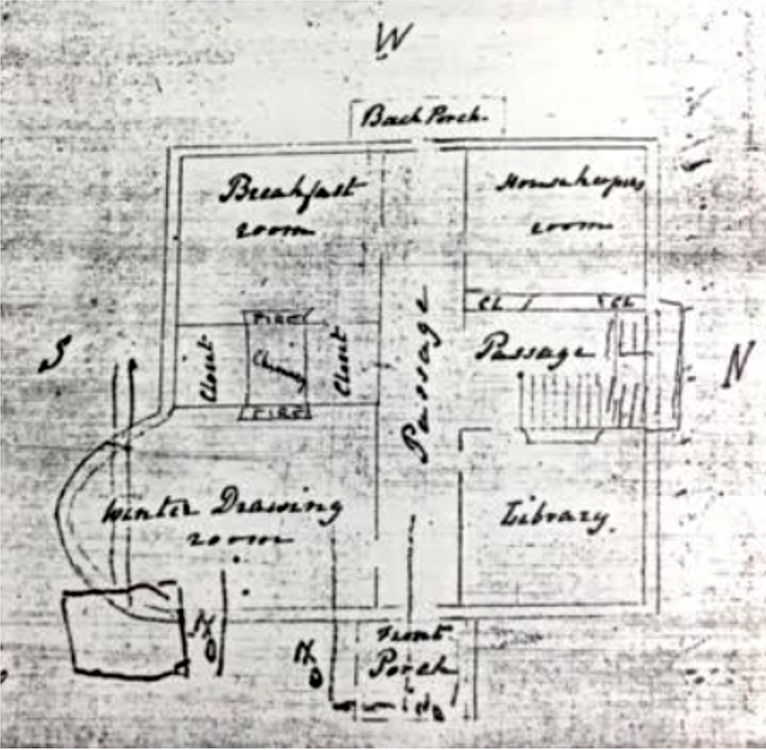 W
Back Porch.
Breakfast
room
Housekeepers
room
FIRE
CL
CL
S
Closet
CL
Closet
Passage
Passage
N
FIRE
Winter Drawing
room
Library.
Front
Porch